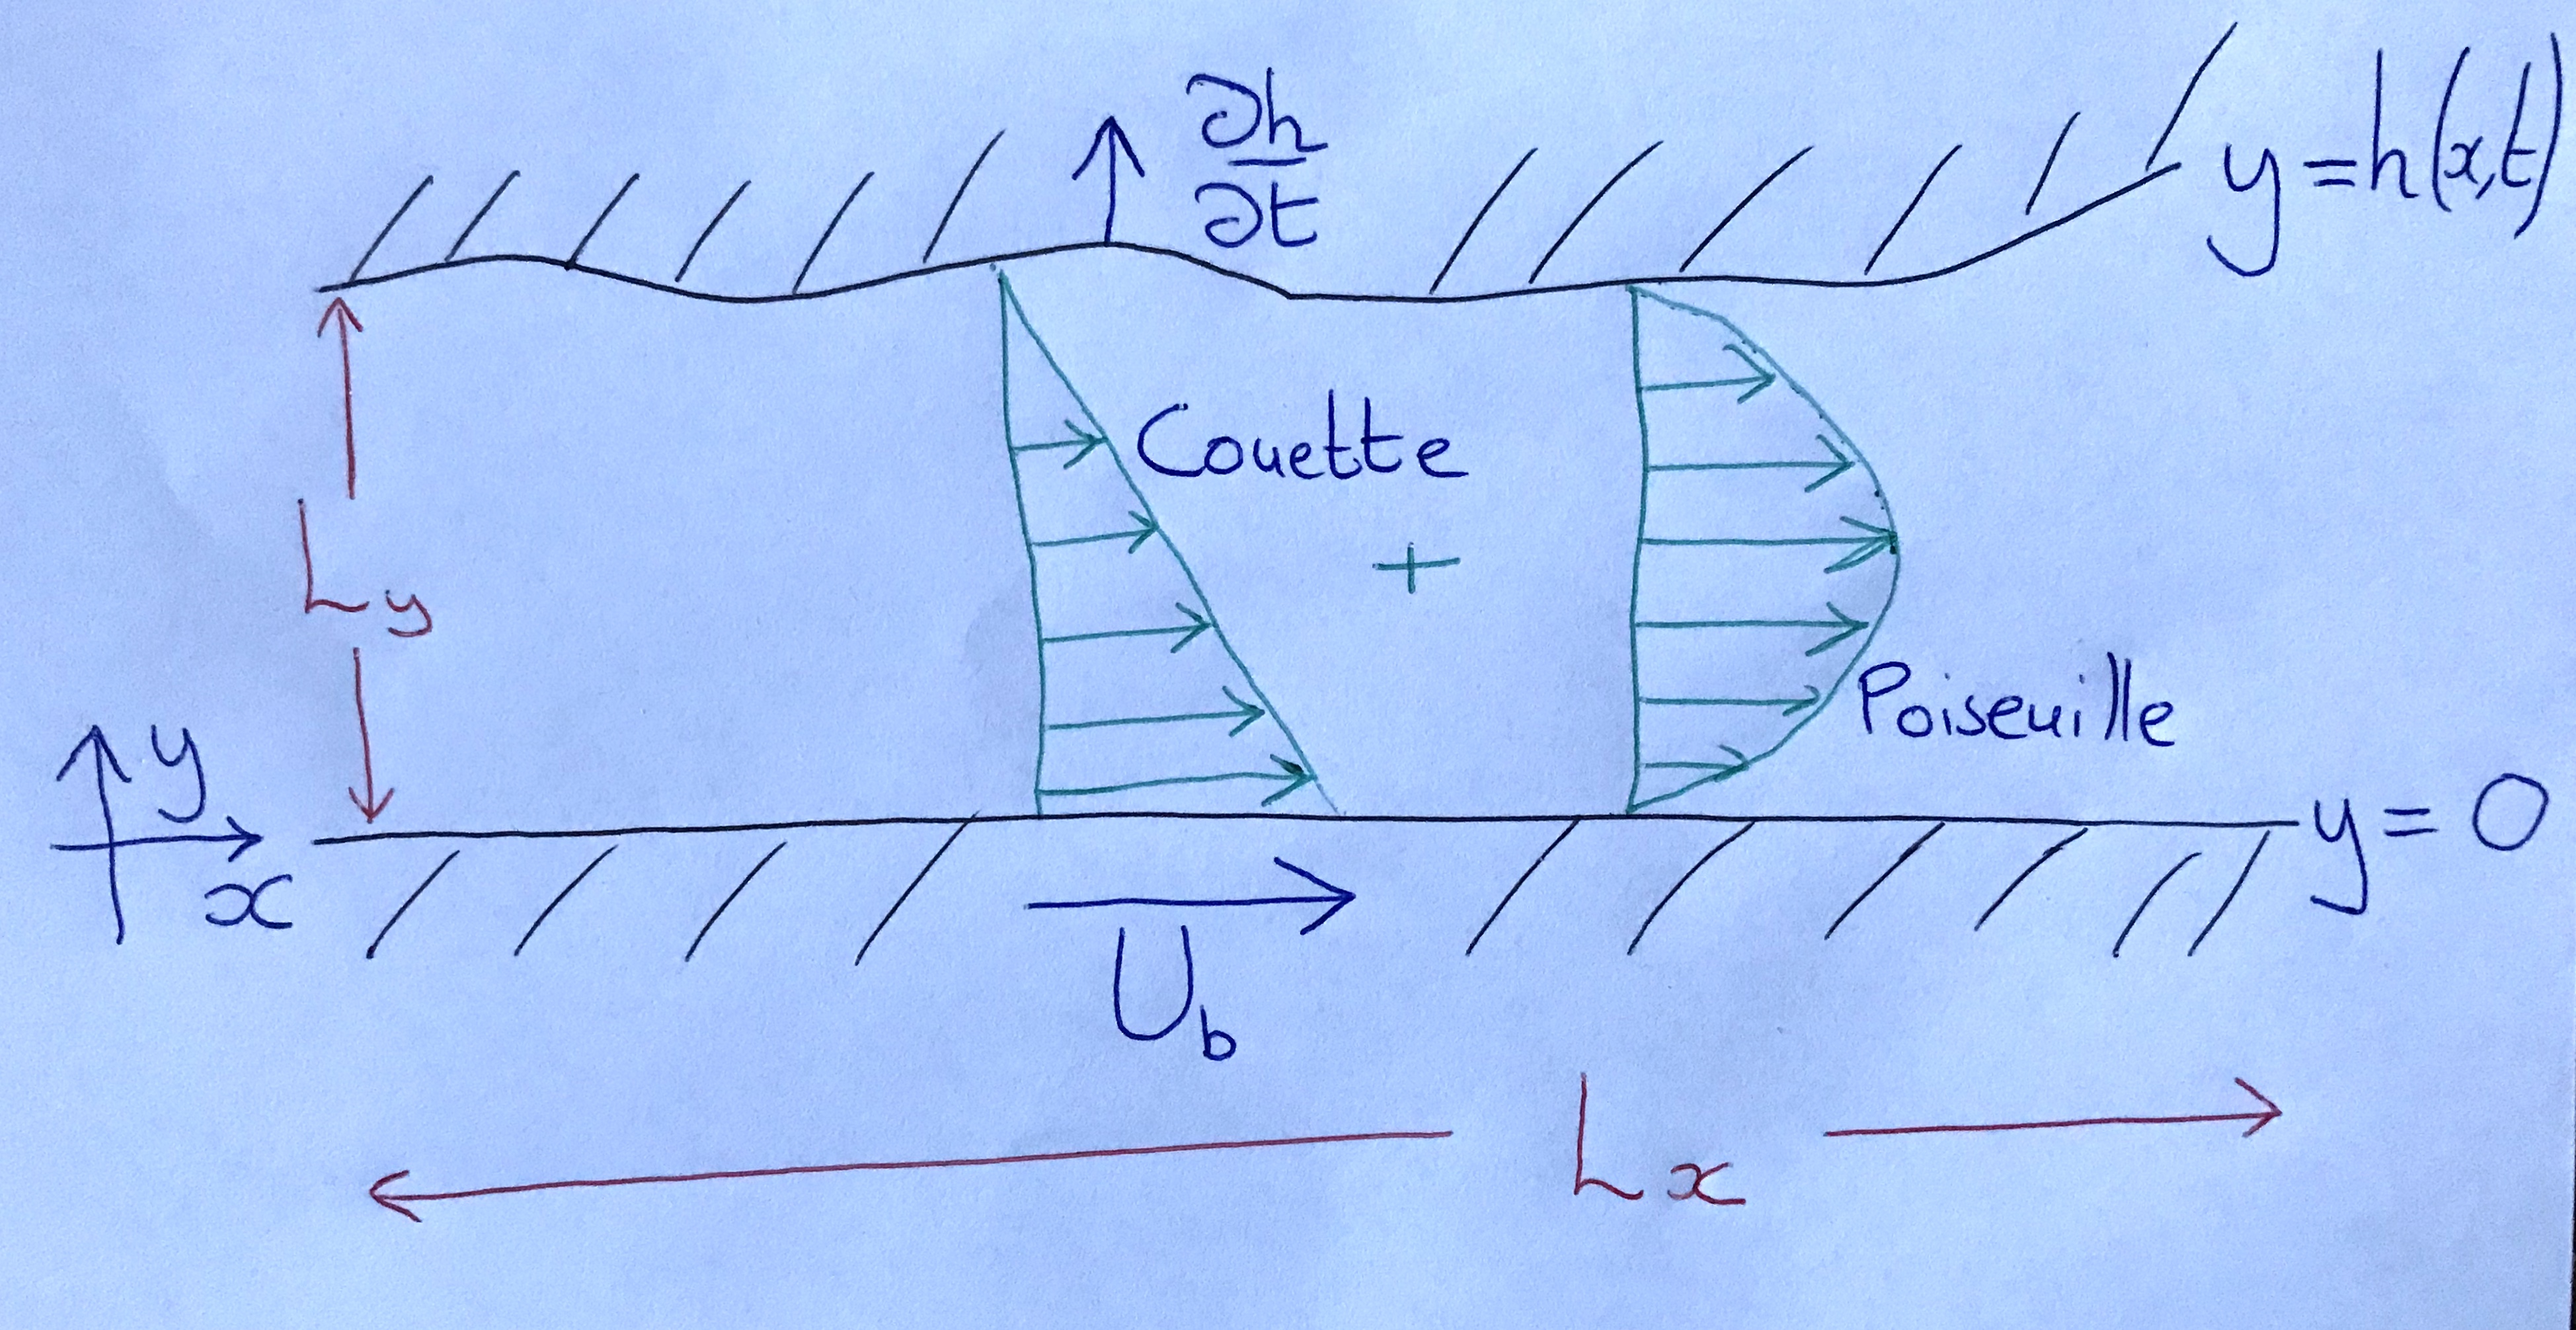 ∂h
∂t
y=h(x,t)
Couette
+
Poiseuille
Ly
y
x
y=0
Ub
Lx